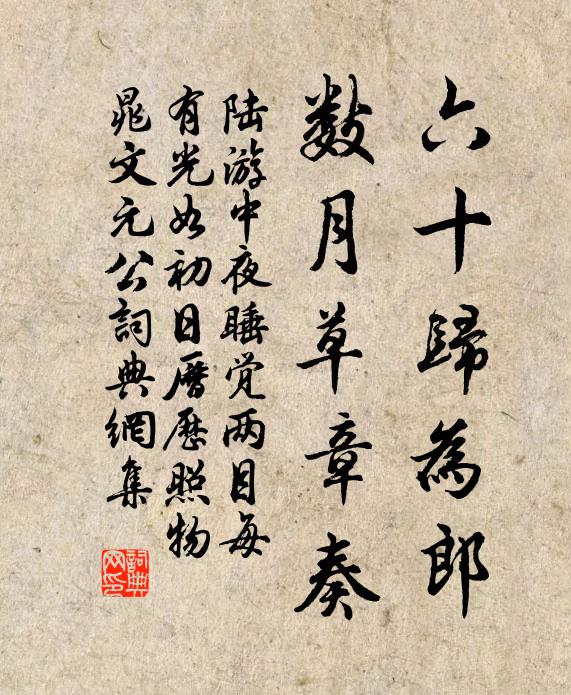 六十歸為郎
数月草章奏
陆游中夜睡觉两目每
有光如初日厝歷照物
晁文元公詞典網集
詞典网印